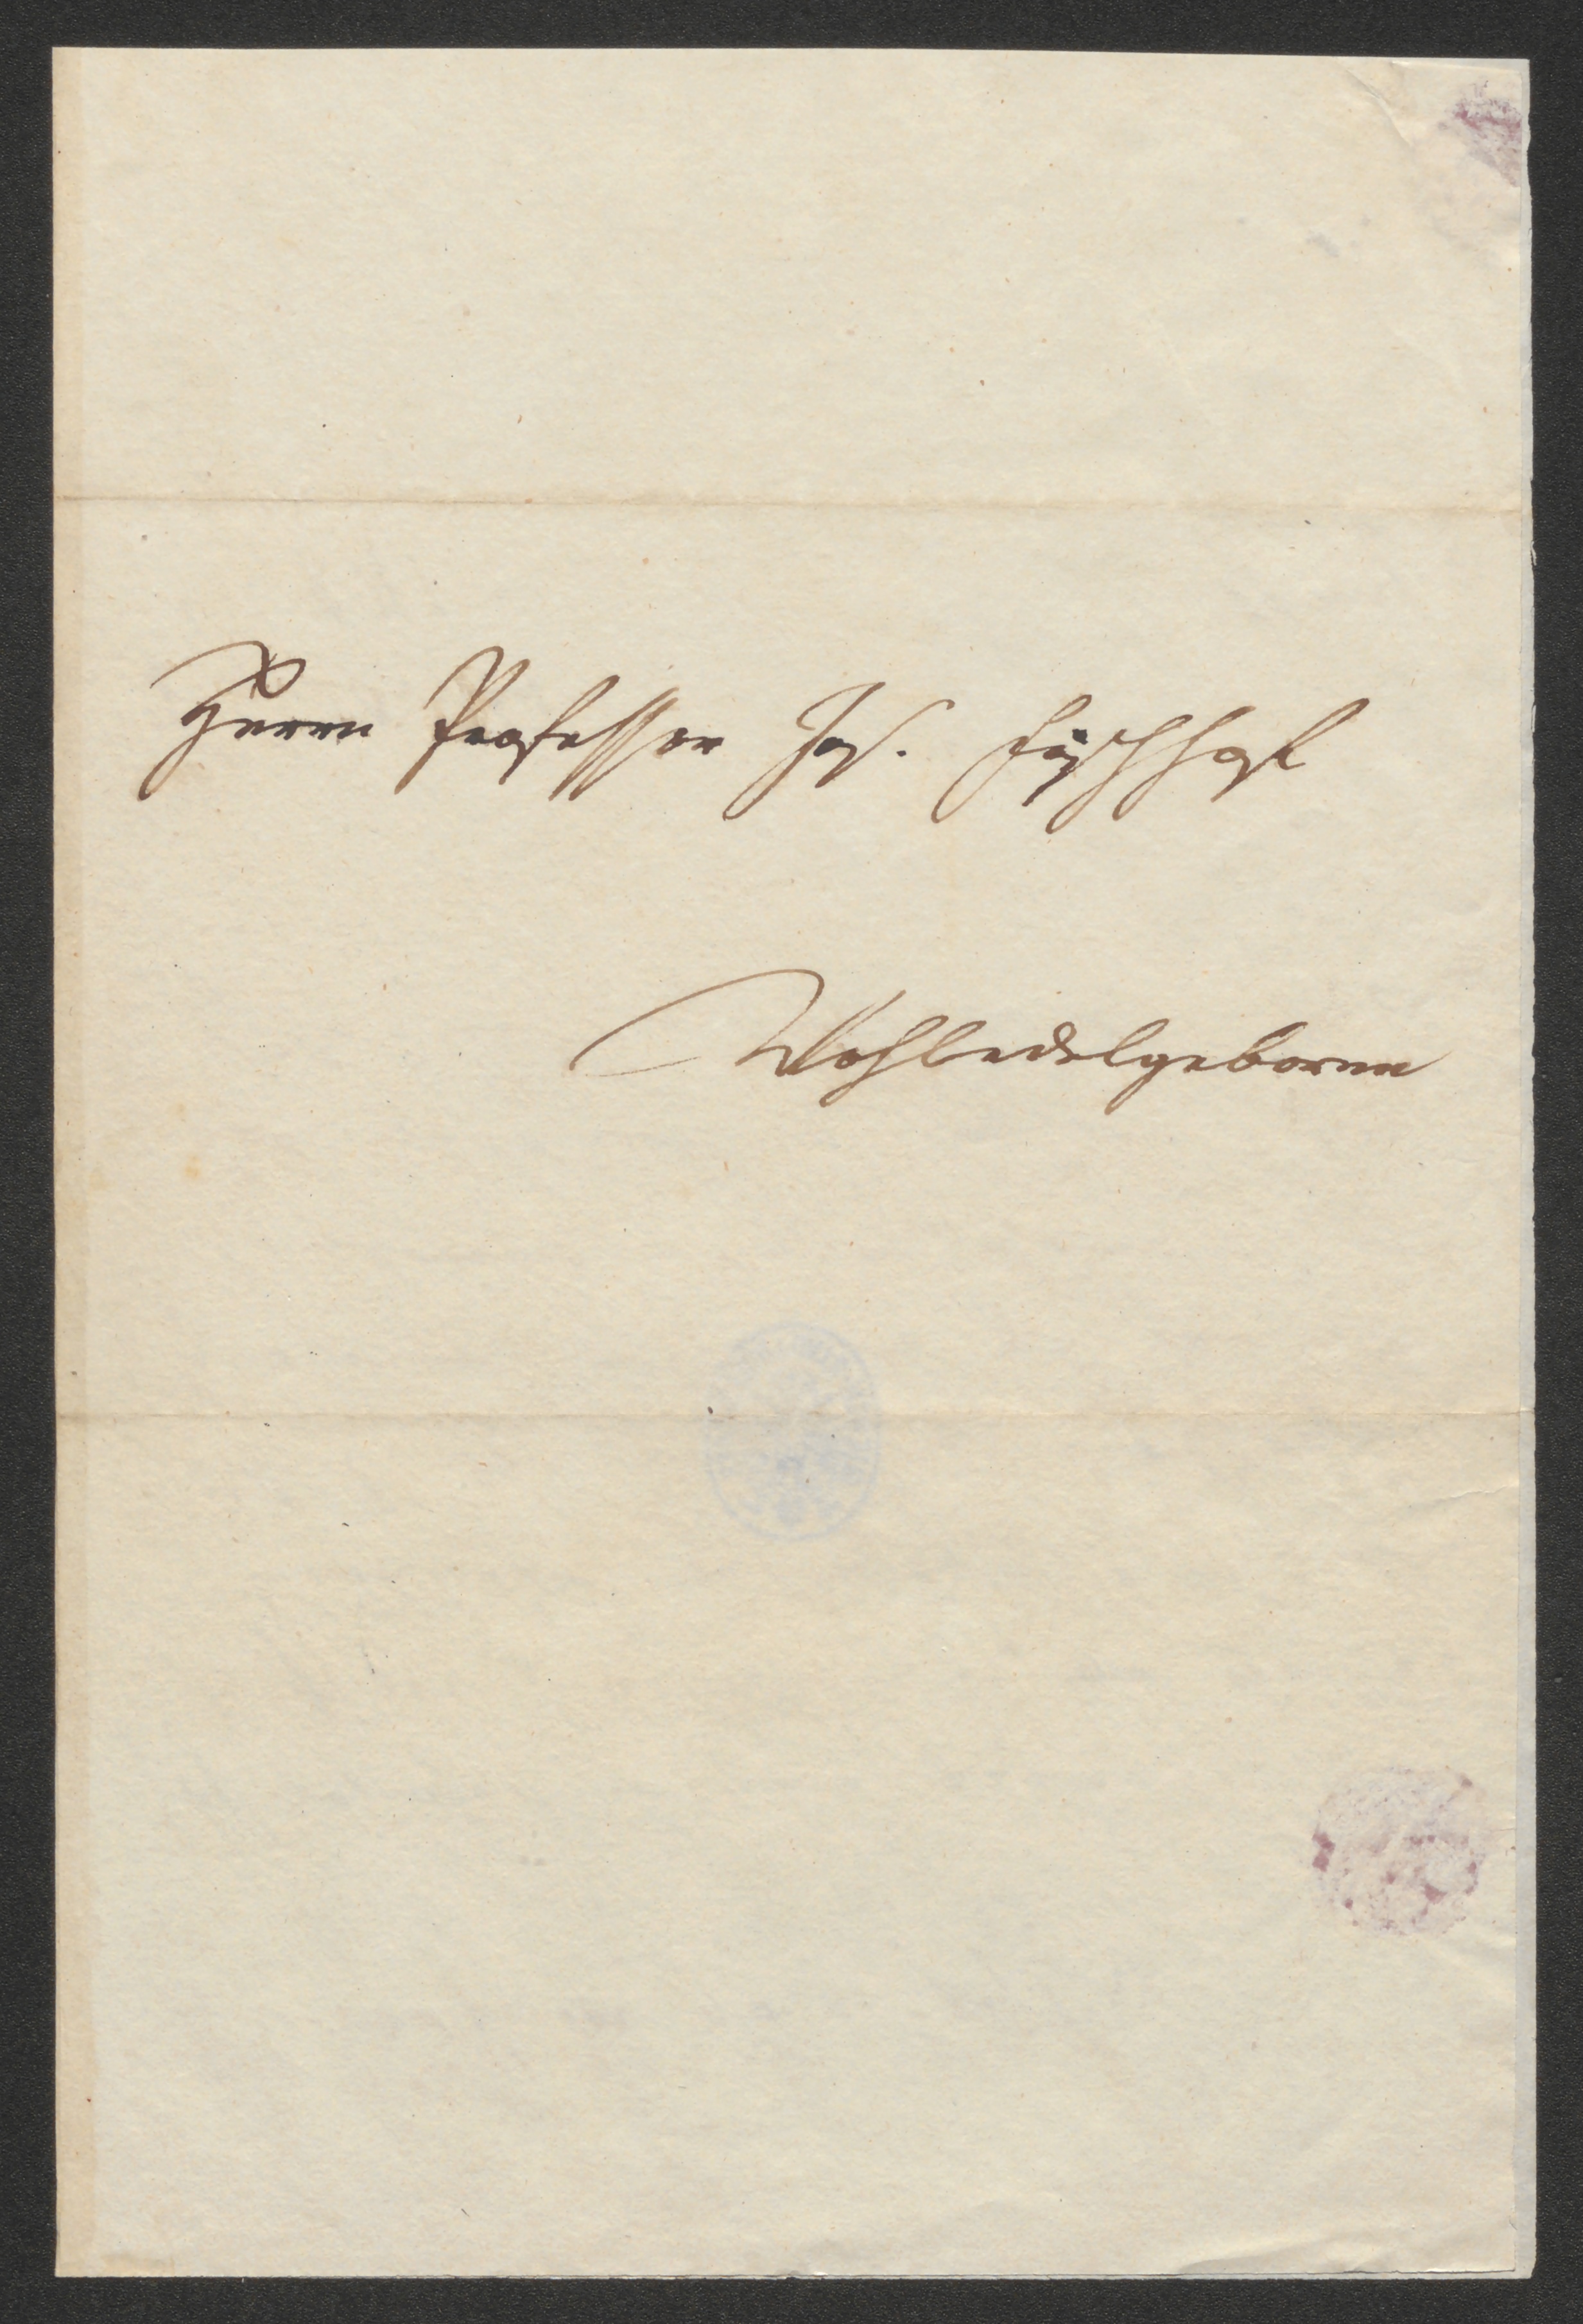 Herrn Professor Jos. Fischhof
Wohledelgeboren